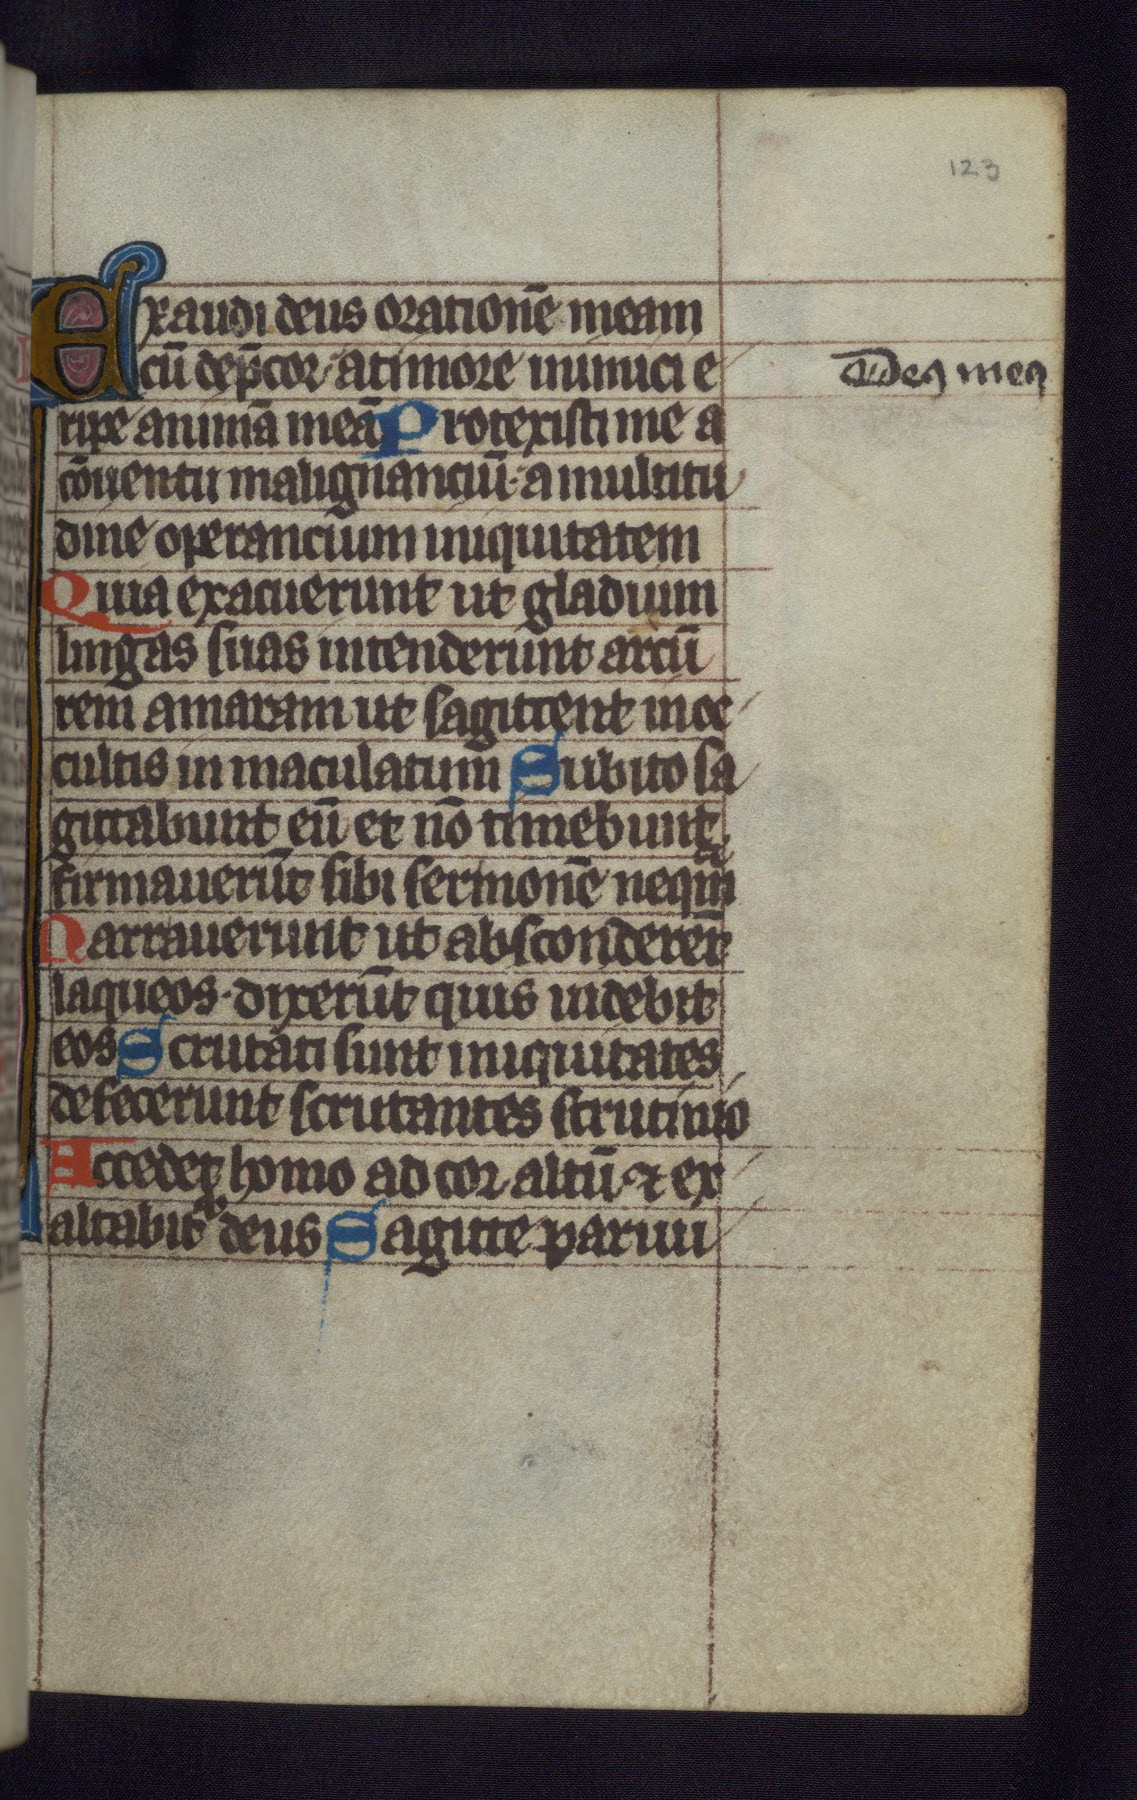 123
Exaudi deus orationē meam
cū dep̄cor· a timore inimici e
ripe animā meā Protexisti me a
cōuentu malignanciū· a multitu
dine operancium iniquitatem
Quia exacuerunt ut gladium
lingas suas intenderunt arcū
rem amaram ut sagittent in oc
cultis in maculatum Subito sa
gittabunt eū et nō timebunt
firmauerūt sibi sermonē nequā
Narrauerunt ut absconderēt
laqueos· dixerūt quis uidebit
eos Scrutati sunt iniquitates
defecerunt scrutantes scrutinio
Accedet homo ad cor altū· ⁊ ex
altabit᷑ deus Sagitte paruu
deꝯ meꝯ